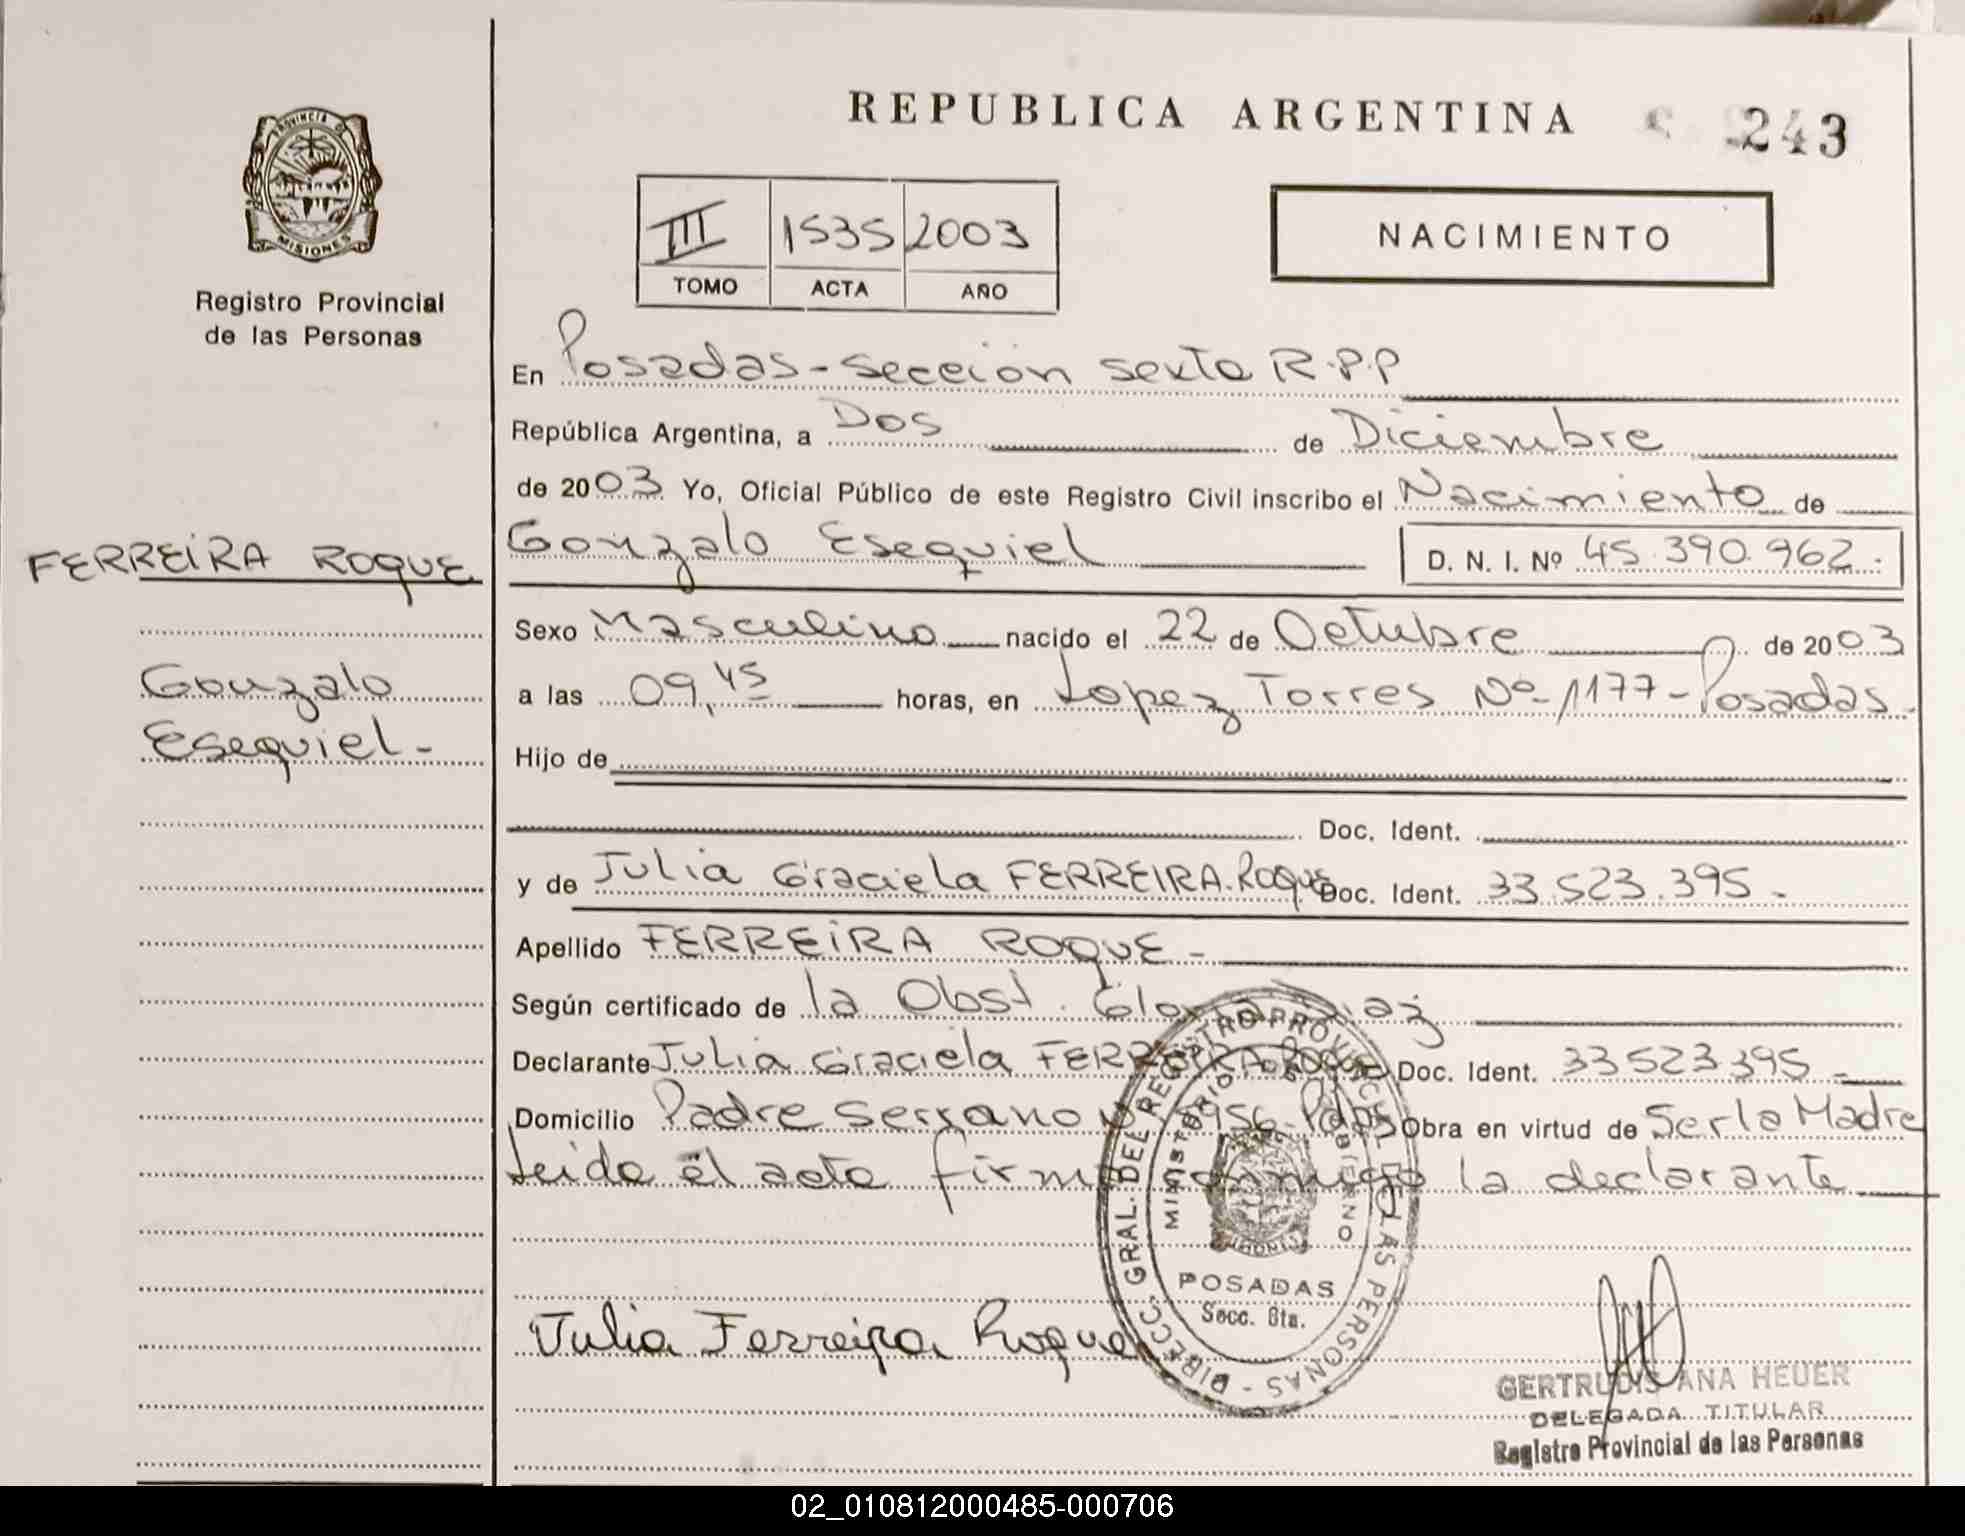 REPUBLICA ARGENTINA
243
PROVINCIA DE
MISIONES
Registro Provincial
de las Personas
III 1535 2003
TOMO ACTA AÑO
NACIMIENTO
En Posadas-sección sexta R.P.P
República Argentina, a Dos de Diciembre
de 2003 Yo, Oficial Público de este Registro Civil inscribo el Nacimiento de
FERREIRA ROQUE
Gonzalo Esequiel D. N. I. Nº 45.390.962.
Gonzalo
Esequiel-
Sexo Masculino nacido el 22 de Octubre de 2003
a las 09,45 horas, en Lopez Torres Nº-1177-Posadas.
Hijo de
Doc. Ident.
y de Julia Graciela FERREIRA.Roque Doc. Ident. 33.523.395-
Apellido FERREIRA ROQUE-
Según certificado de la Obst. Gloria Diaz
Declarante Julia Graciela FERREIRA Roque Doc. Ident. 33523395-
Domicilio Padre Serrano Pdas Obra en virtud de Ser la Madre
Leida el acta firma conmigo la declarante
Julia Ferreira Roque
DIRECC. GRAL. DEL REGISTRO PROVINCIAL DE LAS PERSONAS -
MINISTERIO DE GOBIERNO
POSADAS
Secc. 6ta.
GERTRUDIS ANA HEUER
DELEGADA TITULAR
Registro Provincial de las Personas
02_010812000485-000706